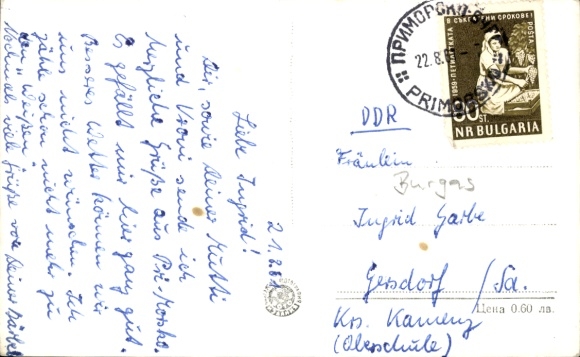 Liebe Ingrid!
Dir, sowie Deiner Mutti
und Vroni sende ich
herzliche Grüße aus Pri-Morsko.
Es gefällt mir hier ganz gut.
Besseres Wetter können wir
uns nicht wünschen. Ich
zähle schon nicht mehr zu
den "Weißen".
Nochmals viele Grüße von Deiner
21.8.61
ПРИМОРСКО
22.8.6
PRIMORSKO
1959-ПЕТИЛЕТКАТА
В СЪКРАТЕНИ СРОКОВЕ!
POŠTA
80 ST.
NR BULGARIA
DDR
Fräulein
Burgas
Ingrid Garbe
Gersdorf / Sa.
Цена 0.60 лв.
Krs. Kamenz
(Oberschule)